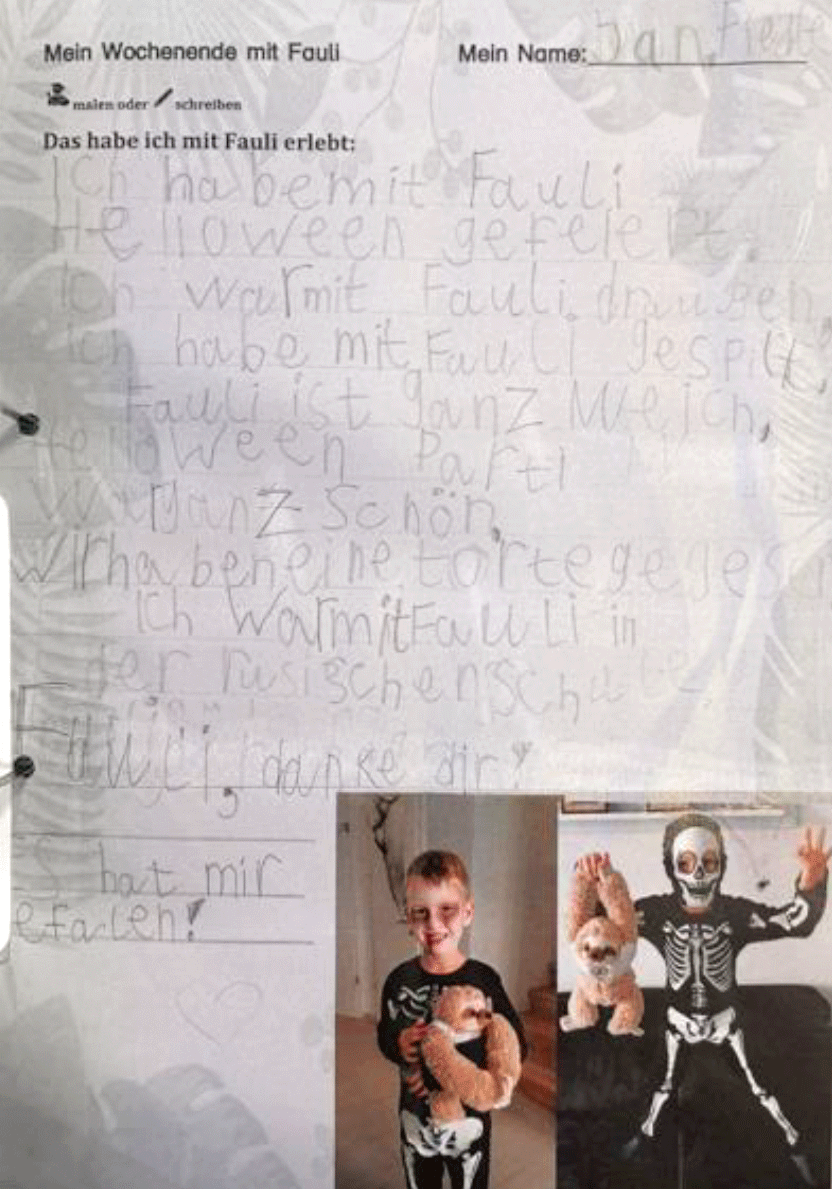 Mein Wochenende mit Fauli
Mein Name: Jan
malen oder schreiben
Das habe ich mit Fauli erlebt:
Ich habe mit Fauli
Helloween gefeiert.
Ich war mit Fauli draußen,
Ich habe mit Fauli gespilt,
Fauli ist ganz Weich,
Helloween Parti
war ganz schön,
Wir haben eine torte gegese
Ich war mit Fauli in
der rusischen Schule
Fauli, danke dir!
Es hat mir
gefalen!